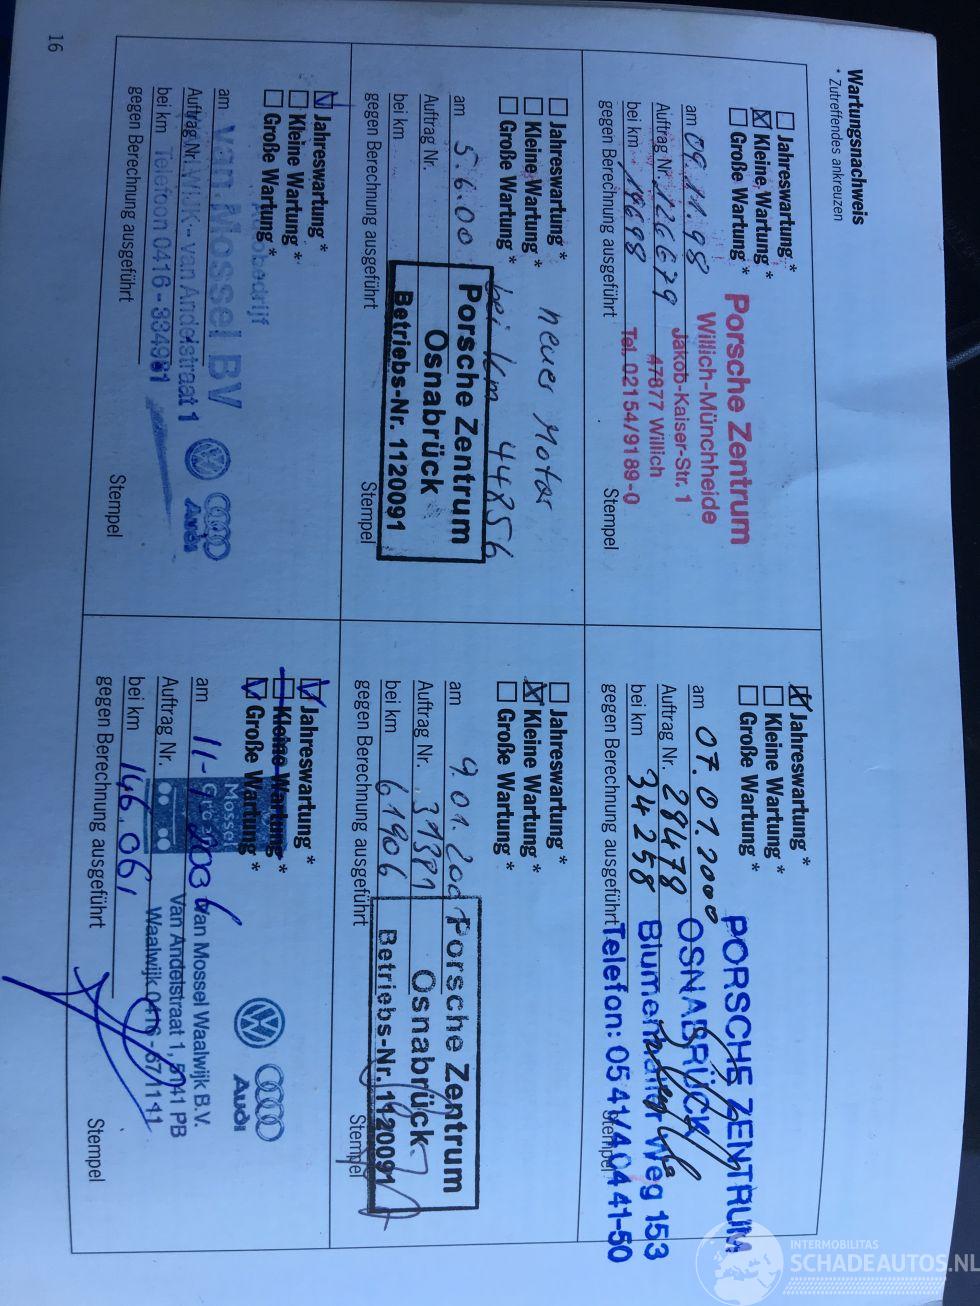 Wartungsnachweis
* Zutreffendes ankreuzen
Jahreswartung *
Kleine Wartung *
Große Wartung *
Porsche Zentrum
Willich-Münchheide
Jakob-Kaiser-Str. 1
47877 Willich
Tel. 02154/9189-0
am 09.11.98
Auftrag Nr. 1266679
bei km 19698
gegen Berechnung ausgeführt
Stempel
Jahreswartung *
Kleine Wartung *
Große Wartung *
PORSCHE ZENTRUM
OSNABRÜCK
Blumenhaller Weg 153
Telefon: 05 41/4 04 41-50
am 07.07.2000
Auftrag Nr. 28478
bei km 34258
gegen Berechnung ausgeführt
Stempel
Jahreswartung *
Kleine Wartung *
Große Wartung *
neuer Motor
bei km 44856
am 5.6.00
Auftrag Nr.
bei km
gegen Berechnung ausgeführt
Porsche Zentrum
Osnabrück
Betriebs-Nr. 1120091
Stempel
Jahreswartung *
Kleine Wartung *
Große Wartung *
am 9.01.200
Auftrag Nr. 31381
bei km 61906
gegen Berechnung ausgeführt
Porsche Zentrum
Osnabrück
Betriebs-Nr. 1120091
Stempel
Jahreswartung *
Kleine Wartung *
Große Wartung *
am
Auftrag Nr.
bei km
gegen Berechnung ausgeführt
Van Mossel BV
van Andelstraat 1
Telefoon 0416 - 334981
Audi
Stempel
Jahreswartung *
Kleine Wartung *
Große Wartung *
am
Auftrag Nr.
bei km 146.061
gegen Berechnung ausgeführt
Mossel
Van Mossel Waalwijk B.V.
Van Andelstraat 1, 5141 PB
Waalwijk
Audi
Stempel
16
INTERMOBILITAS
SCHADEAUTOS.NL